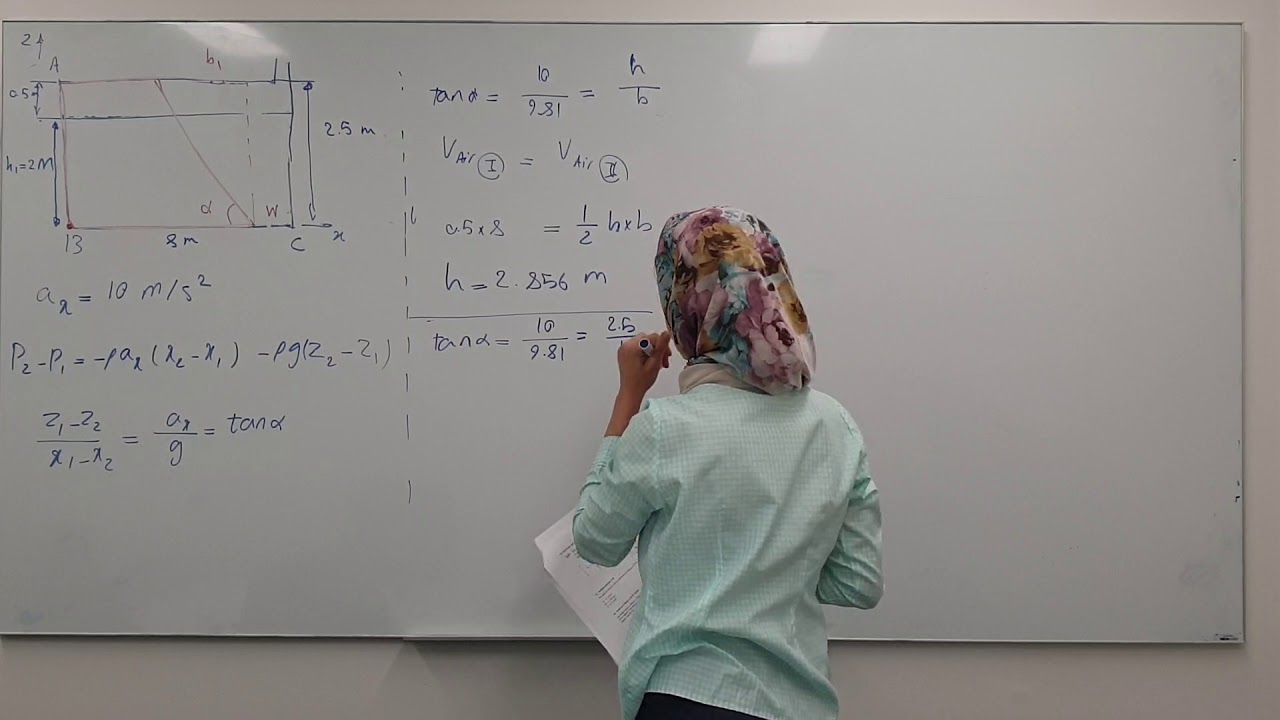 z
A
b₁
0.5
2.5 m
h₁=2M
α
W
B
8 m
C
x
aₓ = 10 m/s²
P₂-P₁ = -ρaₓ(x₂-x₁) -ρg(z₂-z₁)
z₁-z₂ / x₁-x₂ = aₓ / g = tanα
tanα = 10 / 9.81 = h / b
V Air Ⅰ = V Air Ⅱ
0.5×8 = 1/2 h×b
h = 2.856 m
tanα = 10 / 9.81 = 2.5 /